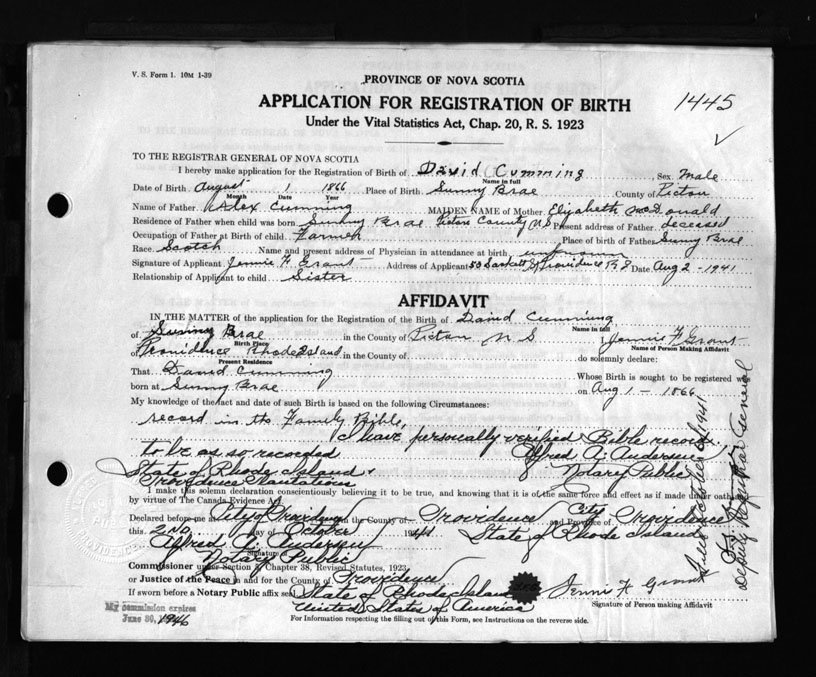 V. S. Form 1. 10M 1-39
PROVINCE OF NOVA SCOTIA
APPLICATION FOR REGISTRATION OF BIRTH
1445
Under the Vital Statistics Act, Chap. 20, R. S. 1923
TO THE REGISTRAR GENERAL OF NOVA SCOTIA
I hereby make application for the Registration of Birth of David Cumming Sex Male
Name in full
Date of Birth August 1 1866 Place of Birth Sunny Brae County of Pictou
Month Date Year
Name of Father Alex Cumming MAIDEN NAME of Mother Elizabeth McDonald
Residence of Father when child was born Sunny Brae Pictou County N S Present address of Father deceased
Occupation of Father at Birth of child Farmer Place of birth of Father Sunny Brae
Race Scotch Name and present address of Physician in attendance at birth unknown
Signature of Applicant Jennie H Grant Address of Applicant 50 St Providence R I Date Aug 2 - 1941
Relationship of Applicant to child Sister
AFFIDAVIT
IN THE MATTER of the application for the Registration of the Birth of David Cumming
Name in full
of Sunny Brae in the County of Pictou N S I Jennie H Grant
Birth Place Name of Person Making Affidavit
of Providence Rhode Island in the County of do solemnly declare:
Present Residence
That David Cumming Whose Birth is sought to be registered was
born at Sunny Brae on Aug 1 - 1866
My knowledge of the fact and date of such Birth is based on the following Circumstances:
record in the Family Bible,
I have personally verified Bible record
to be as so recorded Alfred A. Andersen
State of Rhode Island & Notary Public
Providence Plantations
I make this solemn declaration conscientiously believing it to be true, and knowing that it is of the same force and effect as if made under oath
by virtue of The Canada Evidence Act
Declared before me at City of Providence in the County of Providence and Province of City Providence
this 2nd day of October 1941 State of Rhode Island
Alfred A. Andersen
Signature of
Notary Public
Commissioner under Section Chapter 38, Revised Statutes, 1923
or Justice of the Peace in and for the County of Providence
If sworn before a Notary Public affix seal State of Rhode Island Jennie H Grant
United States of America Signature of Person making Affidavit
My commission expires
June 30, 1946
For Information respecting the filling out of this Form, see Instructions on the reverse side.
Deputy Registrar General